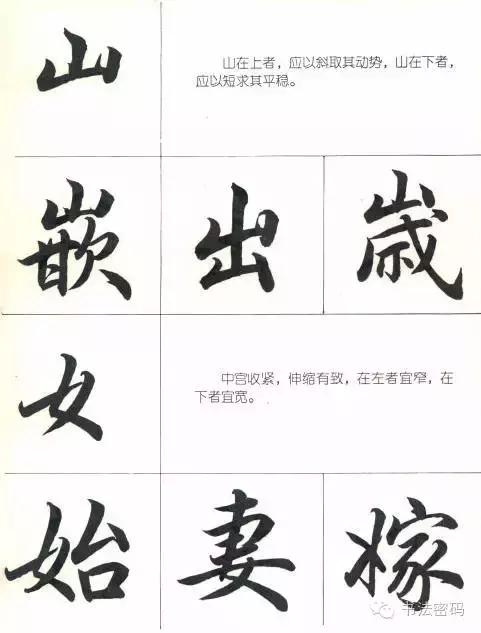 山
山在上者，应以斜取其动势，山在下者，
应以短求其平稳。
嵌 出 歳
女
中宫收紧，伸缩有致，在左者宜窄，在
下者宜宽。
始 妻 嫁
书法密码